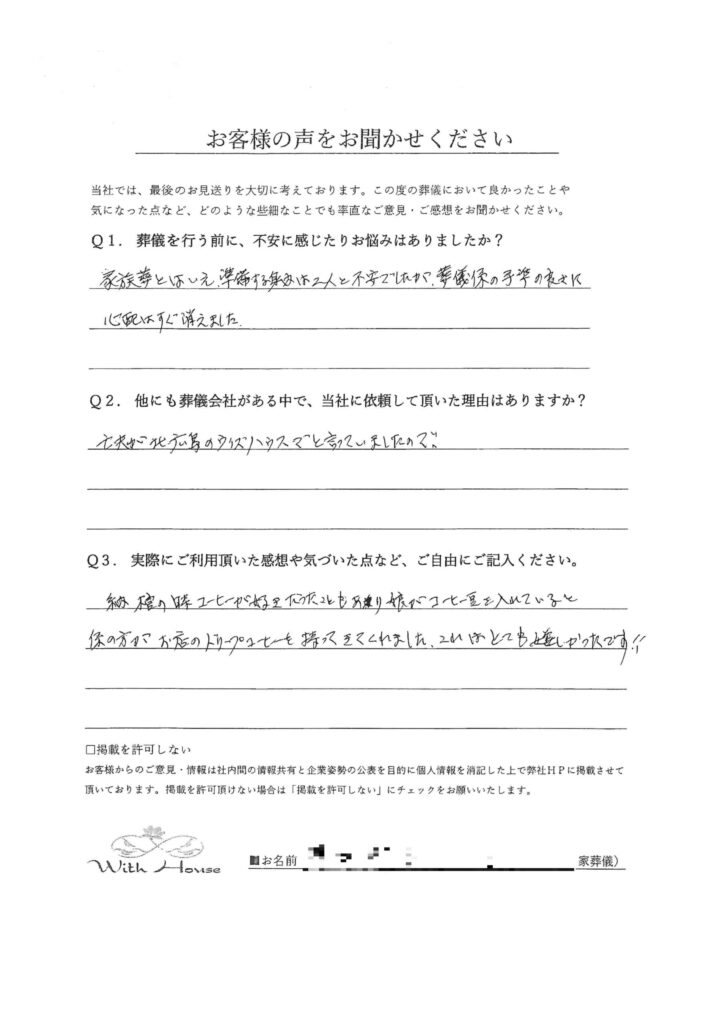 お客様の声をお聞かせください
当社では、最後のお見送りを大切に考えております。この度の葬儀において良かったことや
気になった点など、どのような些細なことでも率直なご意見・ご感想をお聞かせください。
Q1. 葬儀を行う前に、不安に感じたりお悩みはありましたか?
家族葬とはいえ、準備する身内は2人と不安でしたが、葬儀係の手準の良さに
心配はすぐ消えました。
Q2. 他にも葬儀会社がある中で、当社に依頼して頂いた理由はありますか?
亡夫が北広島のウイズハウスでと言っていましたので。
Q3. 実際にご利用頂いた感想や気づいた点など、ご自由にご記入ください。
納棺の時コーヒーが好きだったこともあり娘がコーヒー豆を入れていると
係の方が お店のドリップコーヒーを持ってきてくれました、これはとても嬉しかったです!!
□掲載を許可しない
お客様からのご意見・情報は社内間の情報共有と企業姿勢の公表を目的に個人情報を消記した上で弊社HPに掲載させて
頂いております。掲載を許可頂けない場合は「掲載を許可しない」にチェックをお願いいたします。
With House
お名前 家葬儀)